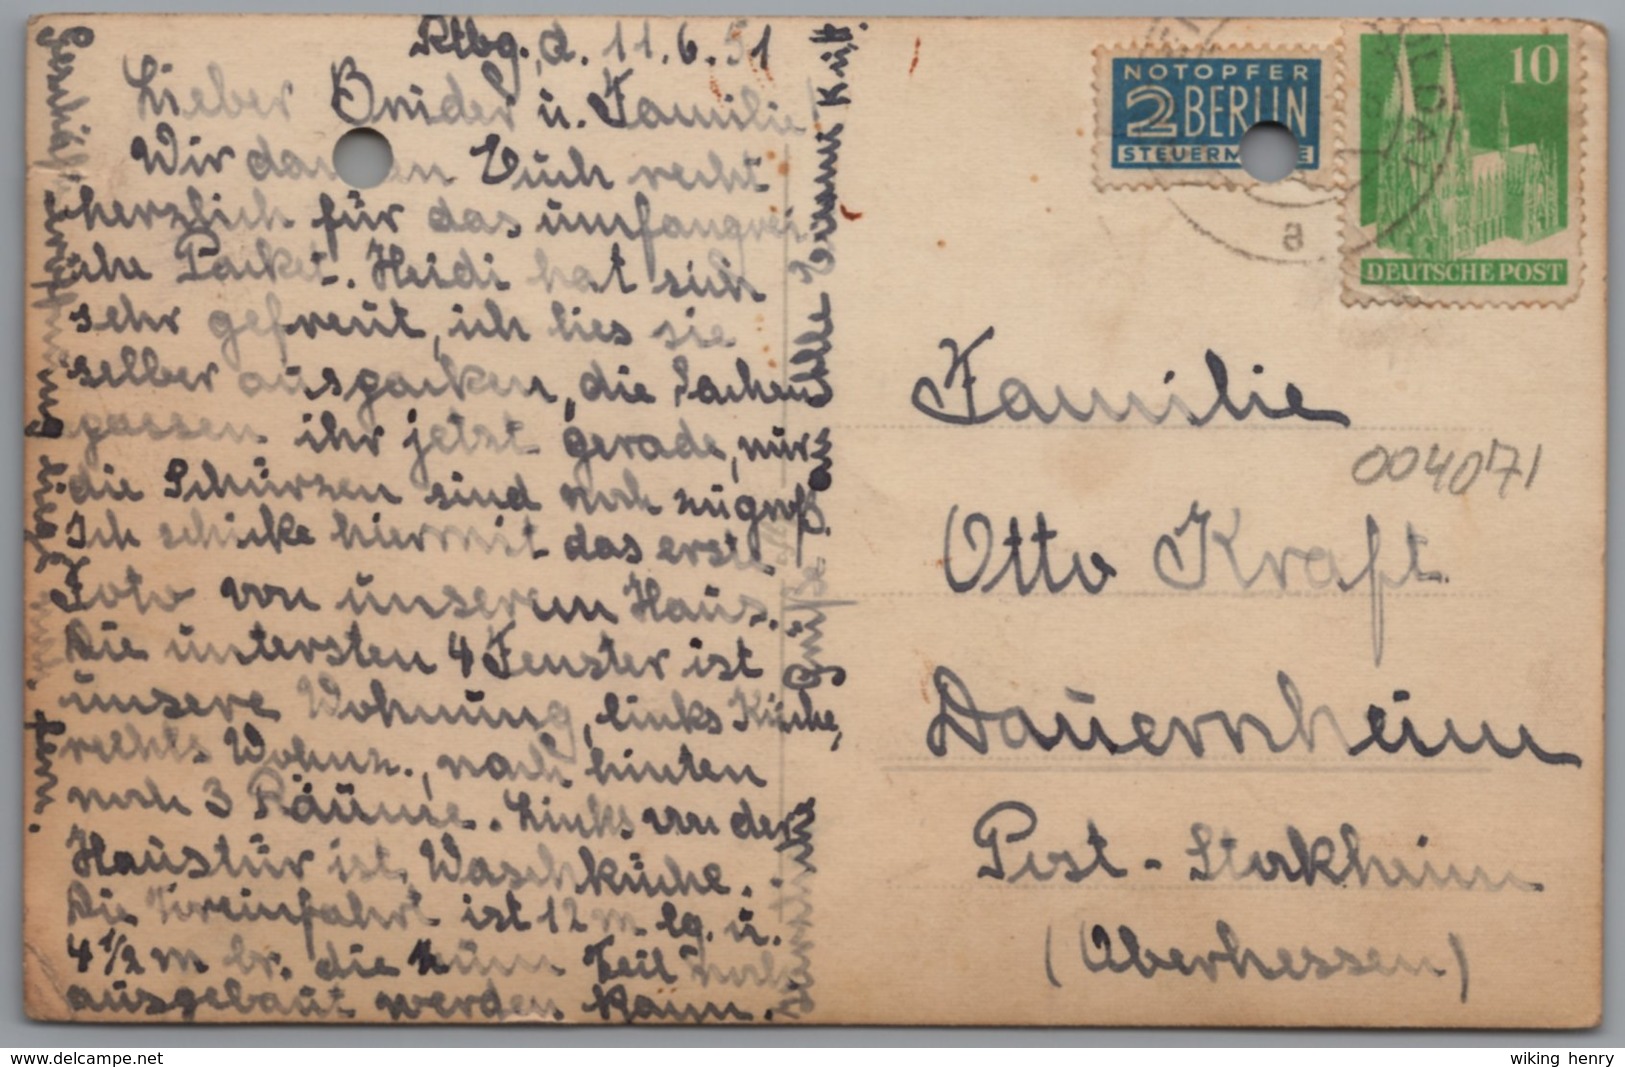 Rtbg., d. 11.6.51
Lieber Bruder u. Familie
Wir danken Euch recht
herzlich für das umfangrei-
che Packet. Heidi hat sich
sehr gefreut, ich lies sie
selber auspacken, die Sachen
passen ihr jetzt gerade, nur
die Schürzen sind noch zugroß.
Ich schicke hiermit das erste
Foto von unserem Haus.
Die untersten 4 Fenster ist
unsere Wohnung, links Küche,
rechts Wohnz., nach hinten
noch 3 Räume. Links von der
Haustür ist Waschküche.
Die Toreinfahrt ist 12 m lg. u.
4 1/2 m br. die zum Teil noch
ausgebaut werden kann.
Geschäftseröffnung liegt noch fern.
Grüße
NOTOPFER
2 BERLIN
STEUERMARKE
10
DEUTSCHE POST
a
Familie
004071
Otto Kraft
Dauernheim
Post-Stockheim
(Oberhessen)
www.delcampe.net
wiking_henry